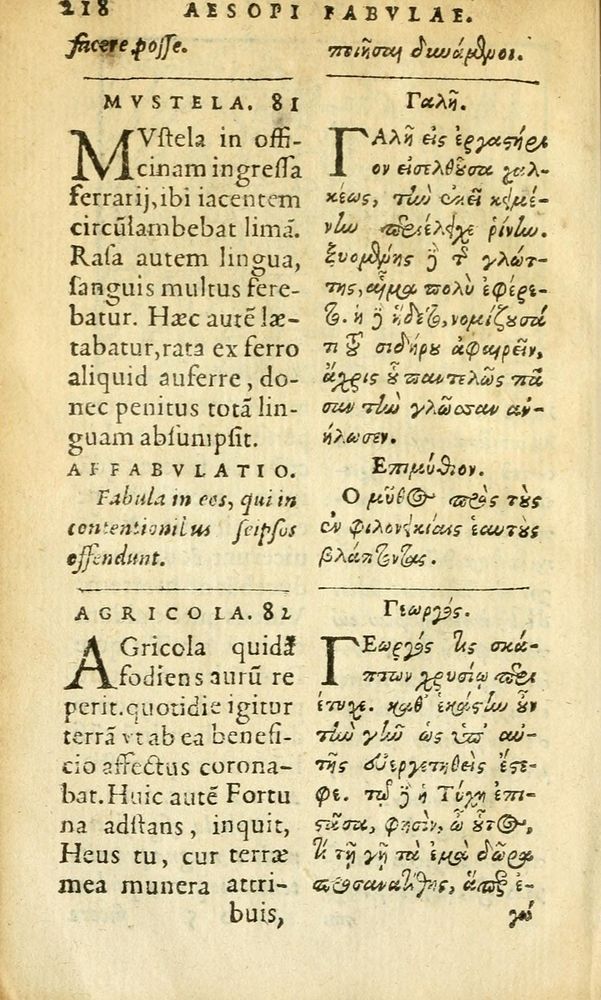 218 AESOPI FABVLAE.
facere posse.
MVSTELA. 81
MVstela in offi-
cinam ingressa
ferrarij, ibi iacentem
circũlambebat limã.
Rasa autem lingua,
sanguis multus fere-
batur. Hæc autẽ læ-
tabatur, rata ex ferro
aliquid auferre, do-
nec penitus totã lin-
guam absumpsit.
AFFABVLATIO.
Fabula in eos, qui in
contentionibus seipsos
offendunt.
AGRICOLA. 82
AGricola quidã
fodiens aurũ re
perit. quotidie igitur
terrã vt ab ea benefi-
cio affectus corona-
bat. Huic autẽ Fortu
na adstans, inquit,
Heus tu, cur terræ
mea munera attri-
buis,
ποιῆσαι δυνάμενοι.
Γαλῆ.
ΓΑλῆ εἰς ἐργαστήρι
ον εἰσελθοῦσα χαλ-
κέως, τὴν ἐκεῖ κειμέ-
νην περιέλειχε ῥίνην.
ξυομένης δὲ τῆς γλώτ-
της, αἷμα πολὺ ἐφέρε-
το. ἡ δὲ ἥδετο, νομίζουσά
τι τοῦ σιδήρου ἀφαιρεῖν,
ἄχρις οὗ παντελῶς πᾶ
σαν τὴν γλῶσσαν ἀν-
ήλωσεν.
Επιμύθιον.
Ο μῦθος πρὸς τοὺς
ἐν φιλονεικίαις ἑαυτοὺς
βλάπτοντας.
Γεωργός.
ΓΕωργός τις σκά-
πτων χρυσίῳ περι
έτυχε. καθ' ἑκάστην οὖν
τὴν γῆν ὡς ὑπ' αὐ-
τῆς εὐεργετηθεὶς ἔστε-
φε. τῷ δὲ ἡ Τύχη ἐπι-
στᾶσα, φησὶν, ὦ οὗτος,
τί τῇ γῇ τὰ ἐμὰ δῶρα
προσανατίθης, ἅπερ ἐ-
γώ